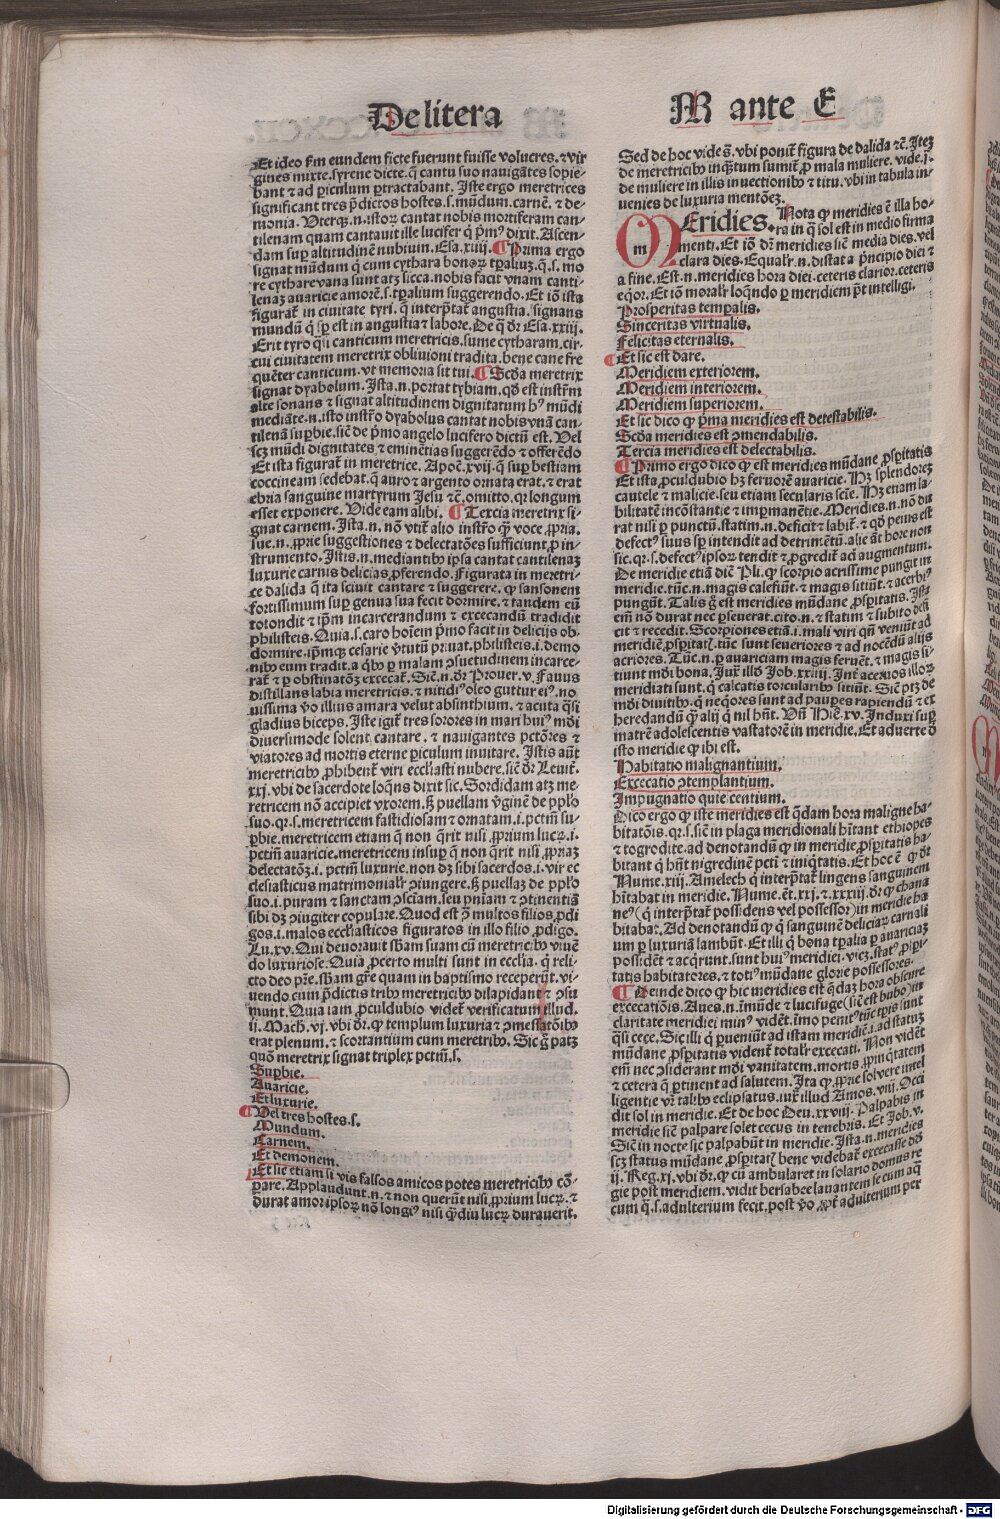 De litera
M ante E
Et ideo ẜm eundem ficte fuerunt fuisse volucres. ⁊ vir
gines mixte. syrene dicte. q̄ cantu suo nauigātes sopie-
bant ⁊ ad p̱iculum p̱tractabant. Iste ergo meretrices
significant tres p̄dictos hostes .s. mūdum. carnē. ⁊ de-
monia. Vterq₃ .n. istoꝝ cantat nobis mortiferam can-
tilenam quam cantauit ille lucifer q̄ p̄mꝰ dixit. Ascen-
dam suꝑ altitudinē nubium. Esa. xiiij. ¶ Prima ergo
signat mūdum q̄ cum cythara bonoꝝ tꝑaliuꝫ .q.s. mo
re cythare vana sunt atꝫ sicca. nobis facit vnam canti-
lenaꝫ auaricie amorē .s. tꝑalium suggerendo. Et iō ista
figurat̄ in ciuitate tyri. q̄ interp̄tat̄ angustia. signans
mundū q̄ sꝑ est in angustia ⁊ labore. De q̄ dr̄ Esa. xxiij.
Erit tyro q̄si canticum meretricis. sume cytharam. cir-
cui ciuitatem meretrix obliuioni tradita. bene cane fre
quēter canticum. vt memoria sit tui. ¶ Scd̄a meretrix
signat dyabolum. Ista .n. portat tybiam. qd̄ est instr̄m
alte sonans ⁊ signat altitudinem dignitatum hꝰ mūdi
mediāte .n. isto instr̄o dyabolus cantat nobis vnā can-
tilenā suꝑbie. sicē de p̄mo angelo lucifero dictū est. Vel
scꝫ mūdi dignitates ⁊ eminētias suggerēdo ⁊ offerēdo
Et ista figurat̄ in meretrice. Apoc̄. xvij. q̄ suꝑ bestiam
coccineam sedebat. q̄ auro ⁊ argento ornata erat. ⁊ erat
ebria sanguine martyrum Jesu ⁊c̄. omitto. qꝛ longum
esset exponere. Vide eam alibi. ¶ Tercia meretrix si-
gnat carnem. Ista .n. nō vtit̄ alio instr̄o q̄ꝫ voce ꝓpria.
sue .n. ꝓprie suggestiones ⁊ delectatōes sufficiunt ꝓ in-
strumento. Istis .n. mediantibꝫ ipsa cantat cantilenaꝫ
luxurie carnis delicias ꝓferendo. Figurata in meretri-
ce dalida q̄ ita sciuit cantare ⁊ suggerere. q̄ sansonem
fortissimum suꝑ genua sua fecit dormire. ⁊ tandem eū
totondit ⁊ ip̄m incarcerandum ⁊ excecandū tradidit
philisteis. Quia .s. caro hoīem p̄mo facit in delicijs ob-
dormire. ip̄mqꝫ cesarie v̄tutū priuat. philisteis .i. demo
nibꝫ eum tradit. a q̄bꝫ ꝑ malam ꝯsuetudinem incarce-
rat̄ ⁊ ꝑ obstinatōꝫ excecat̄. Sicē .n. dr̄ Prouer. v. Fauus
distillans labia meretricis. ⁊ nitidiꝰ oleo guttur eiꝰ. no
uissima v̄o illius amara velut absinthium. ⁊ acuta q̄si
gladius biceps. Iste igit̄ tres sorores in mari huiꝰ mūdi
diuersimode solent cantare. ⁊ nauigantes pctōres ⁊
viatores ad mortis eterne ꝑiculum inuitare. Istis aūt
meretricibꝫ ꝓhibent̄ viri eccl̄iasti nubere. sicē dr̄ Leuit̄.
xxj. vbi de sacerdote loq̄ns dixit sic. Sordidam atꝫ me-
retricem nō accipiet vxorem. sꝫ puellam v̄ginē de pp̄lo
suo. qꝛ .s. meretricem fastidiosam ⁊ ornatam .i. pctm̄ su-
ꝑbie. meretricem etiam q̄ non q̄rit nisi ꝓprium lucꝝ .i.
pctm̄ auaricie. meretricem insuꝑ q̄ nō q̄rit nisi ꝓpriaꝫ
delectatōꝫ .i. pctm̄ luxurie. non dꝫ sibi sacerdos .i. vir ec
clesiasticus matrimonialr̄ ꝯiungere. sꝫ puellaꝫ de pp̄lo
suo .i. puram ⁊ sanctam ꝯsciam. seu pn̄iam ⁊ ꝯtinentiā
sibi dꝫ ꝯiugiter copulare. Quod est ꝯ̄ multos filios ꝓdi
gos .i. malos eccl̄iasticos figuratos in illo filio ꝓdigo.
Lu. xv. Qui deuorauit sb̄am suam cū meretricibꝫ viuē
do luxuriose. Quia ꝓcerto multi sunt in eccl̄ia. q̄ reli-
cto deo p̄re. sb̄am gr̄e quam in baptismo receperūt. vi-
uendo cum p̄dictis tribꝫ meretricibꝫ dilapidant ⁊ ꝯsu
munt. Quia iam ꝓculdubio videt̄ verificatum illud.
ij. Mach. vj. vbi dr̄. q̄ templum luxuria ⁊ ꝯmessatōibꝫ
erat plenum. ⁊ scortantium cum meretribꝫ. Sic g̊ patꝫ
quō meretrix signat triplex pctm̄ .s.
Suꝑbie.
Auaricie.
Et luxurie.
¶ Vel tres hostes .s.
Mundum.
Carnem.
Et demonem.
Et sic etiam si vis falsos amicos potes meretricibꝫ cō-
ꝑare. Applaudunt .n. ⁊ non querūt nisi ꝓprium lucꝝ. ⁊
durat amor ipsoꝝ nō longiꝰ nisi q̄ꝫdiu lucꝝ durauerit.
Sed de hoc vide s̄. vbi ponit̄ figura de dalida ⁊c̄. Iteꝫ
de meretricibꝫ inq̄ꝫtum sumit̄ ꝓ mala muliere. vide. j̄.
de muliere in illis inuectionibꝫ ⁊ titu. vbi in tabula in-
uenies de luxuria mentōeꝫ.
MEridies. Nota ꝙ meridies ē illa ho-
ra in q̄ sol est in medio firma
menti. Et iō dr̄ meridies sicē media dies. vel
clara dies. Equalr̄ .n. distat a p̄ncipio diei ⁊
a fine. Est .n. meridies hora diei. ceteris clarior. ceteris
eqͦr. Et iō moralr̄ loq̄ndo ꝑ meridiem p̄t intelligi.
Prosperitas temꝑalis.
Sinceritas virtualis.
Felicitas eternalis.
¶ Et sic est dare.
Meridiem exteriorem.
Meridiem interiorem.
Meridiem superiorem.
Et sic dico ꝙ p̄ma meridies est detestabilis.
Scd̄a meridies est ꝯmendabilis.
Tercia meridies est delectabilis.
¶ Primo ergo dico ꝙ est meridies mūdane ꝓsꝑitatis
Et ista ꝓculdubio hꝫ feruorē auaricie. Hꝫ splendoreꝫ
cautele ⁊ malicie. seu etiam secularis sciē. Hꝫ etiam la-
bilitatē incōstantie ⁊ imꝑmanētie. Meridies .n. nō du
rat nisi ꝑ punctū. statim .n. deficit ⁊ labit̄. ⁊ qd̄ peius est
defectꝰ suus sꝑ intendit ad detrimētū. alie aūt hore non
sic. qꝛ .s. defectꝰ ipsoꝝ tendit ⁊ ꝓgredit̄ ad augmentum.
De meridie etiā dicit Pli. ꝙ scorpio acrissime pungit in
meridie. tūc .n. magis calefiūt. ⁊ magis sitiūt. ⁊ acerbiꝰ
pungūt. Talis g̊ est meridies mūdane ꝓsꝑitatis. Ista
em̄ nō durat nec ꝑseuerat. cito .n. ⁊ statim ⁊ subito defi
cit ⁊ recedit. Scorpiones etiā .i. mali viri qn̄ veniūt ad
meridiē ꝓsꝑitatꝭ. tūc sunt seueriores ⁊ ad nocēdū alijs
acriores. Tūc .n. ꝑ auariciam magis feruēt. ⁊ magis si-
tiunt mūdi bona. Iuxͭ illd̄ Job. xxiiij. Int̄ aceruos illoꝝ
meridiati sunt. q̄ calcatis torcularibꝫ sitiūt. Sicē ptꝫ de
mūdi diuitibꝫ. q̄ neq̄ores sunt ad pauꝑes rapiendū ⁊ ex
heredandū q̄ꝫ alij q̄ nil hn̄t. Vn̄ Hie. xv. Induxi suꝑ
matrē adolescentis vastatorē in meridie. Et aduerte d̄
isto meridie ꝙ ibi est.
Habitatio malignantium.
Excecatio ꝯtemplantium.
Impugnatio quiescentium.
Dico ergo ꝙ iste meridies est q̄dam hora maligne ha-
bitatōis. qꝛ .s. sicē in plaga meridionali hītant ethiopes
⁊ togrodite. ad denotandū ꝙ in meridie ꝓsꝑitatis ha-
bitant q̄ hn̄t nigredinē pcti ⁊ iniq̄tatis. Et hoc ē ꝙ dr̄
Nume. xiij. Amelech q̄ interp̄tat̄ lingens sanguinem
hītabat in meridie. Nume. ēt. xxj. ⁊ xxxiij. dr̄ ꝙ chana
neꝰ (q̄ interp̄tat̄ possidens vel possessor) in meridie ha
bitabat. Ad denotandū ꝙ q̄ sanguinē deliciaꝝ carnali
um ꝑ luxuriā lambūt. Et illi q̄ bona tꝑalia ꝑ auariciaꝫ
possidēt ⁊ acq̄runt. sunt huiꝰ meridiei. vicꝫ. statꝰ ꝓsꝑi-
tatis habitatores. ⁊ totiꝰ mūdane glorie possessores.
¶ Deinde dico ꝙ hic meridies est q̄daꝫ hora obscure
excecatiōis. Aues .n. īmūde ⁊ lucifuge (sicē est bubo) in
claritate meridiei minꝰ vidēt. īmo penitꝰ tūc tꝑis sunt
q̄si cece. Sic illi q̄ ꝑueniūt ad istam meridiē .i. ad statuꝫ
mūdane ꝓsꝑitatis vident̄ totalr̄ excecati. Non vidēt
em̄ nec ꝯsiderant mūdi vanitatem. mortis ꝓpinq̄tatem
⁊ cetera q̄ ꝑtinent ad salutem. Ita ꝙ ꝓprie sol vere intel
ligentie vr̄ talibꝫ eclipsatus. iuxͭ illud Amos. viij. Occi
dit sol in meridie. Et de hoc Deu. xxviij. Palpabis in
meridie sicē palpare solet cecus in tenebris. Et Job. v.
Sicē in nocte sic palpabūt in meridie. Ista .n. meridies
scꝫ status mūdane ꝓsꝑitatꝭ bene videbat̄ excecasse dd̄
ij. Reg. xj. vbi dr̄. ꝙ cū ambularet in solario domus re
gie post meridiem. vidit bersabee lauantem se cum aq̄
cum q̄ .s. adulterium fecit. post v̄o. ꝓpt̄ adulterium per
Digitalisierung gefördert durch die Deutsche Forschungsgemeinschaft - DFG